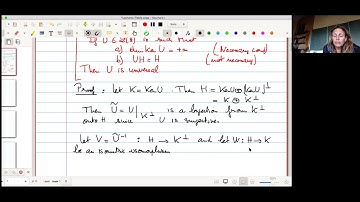 If U ∈ L(H) is such that
a) dim ker U = +∞
b) UH = H
(Necessary cond)
(not necessary)
Then U is universal
Proof: let K = Ker U. Then H = Ker U ⊕ [Ker U]^⊥
= K ⊕ K^⊥
Then Ũ = U|K^⊥ is a bijection from K^⊥
onto H since U is surjective.
let V = Ũ^-1 : H → K^⊥ and let W: H → K
be an isometric isomorphism